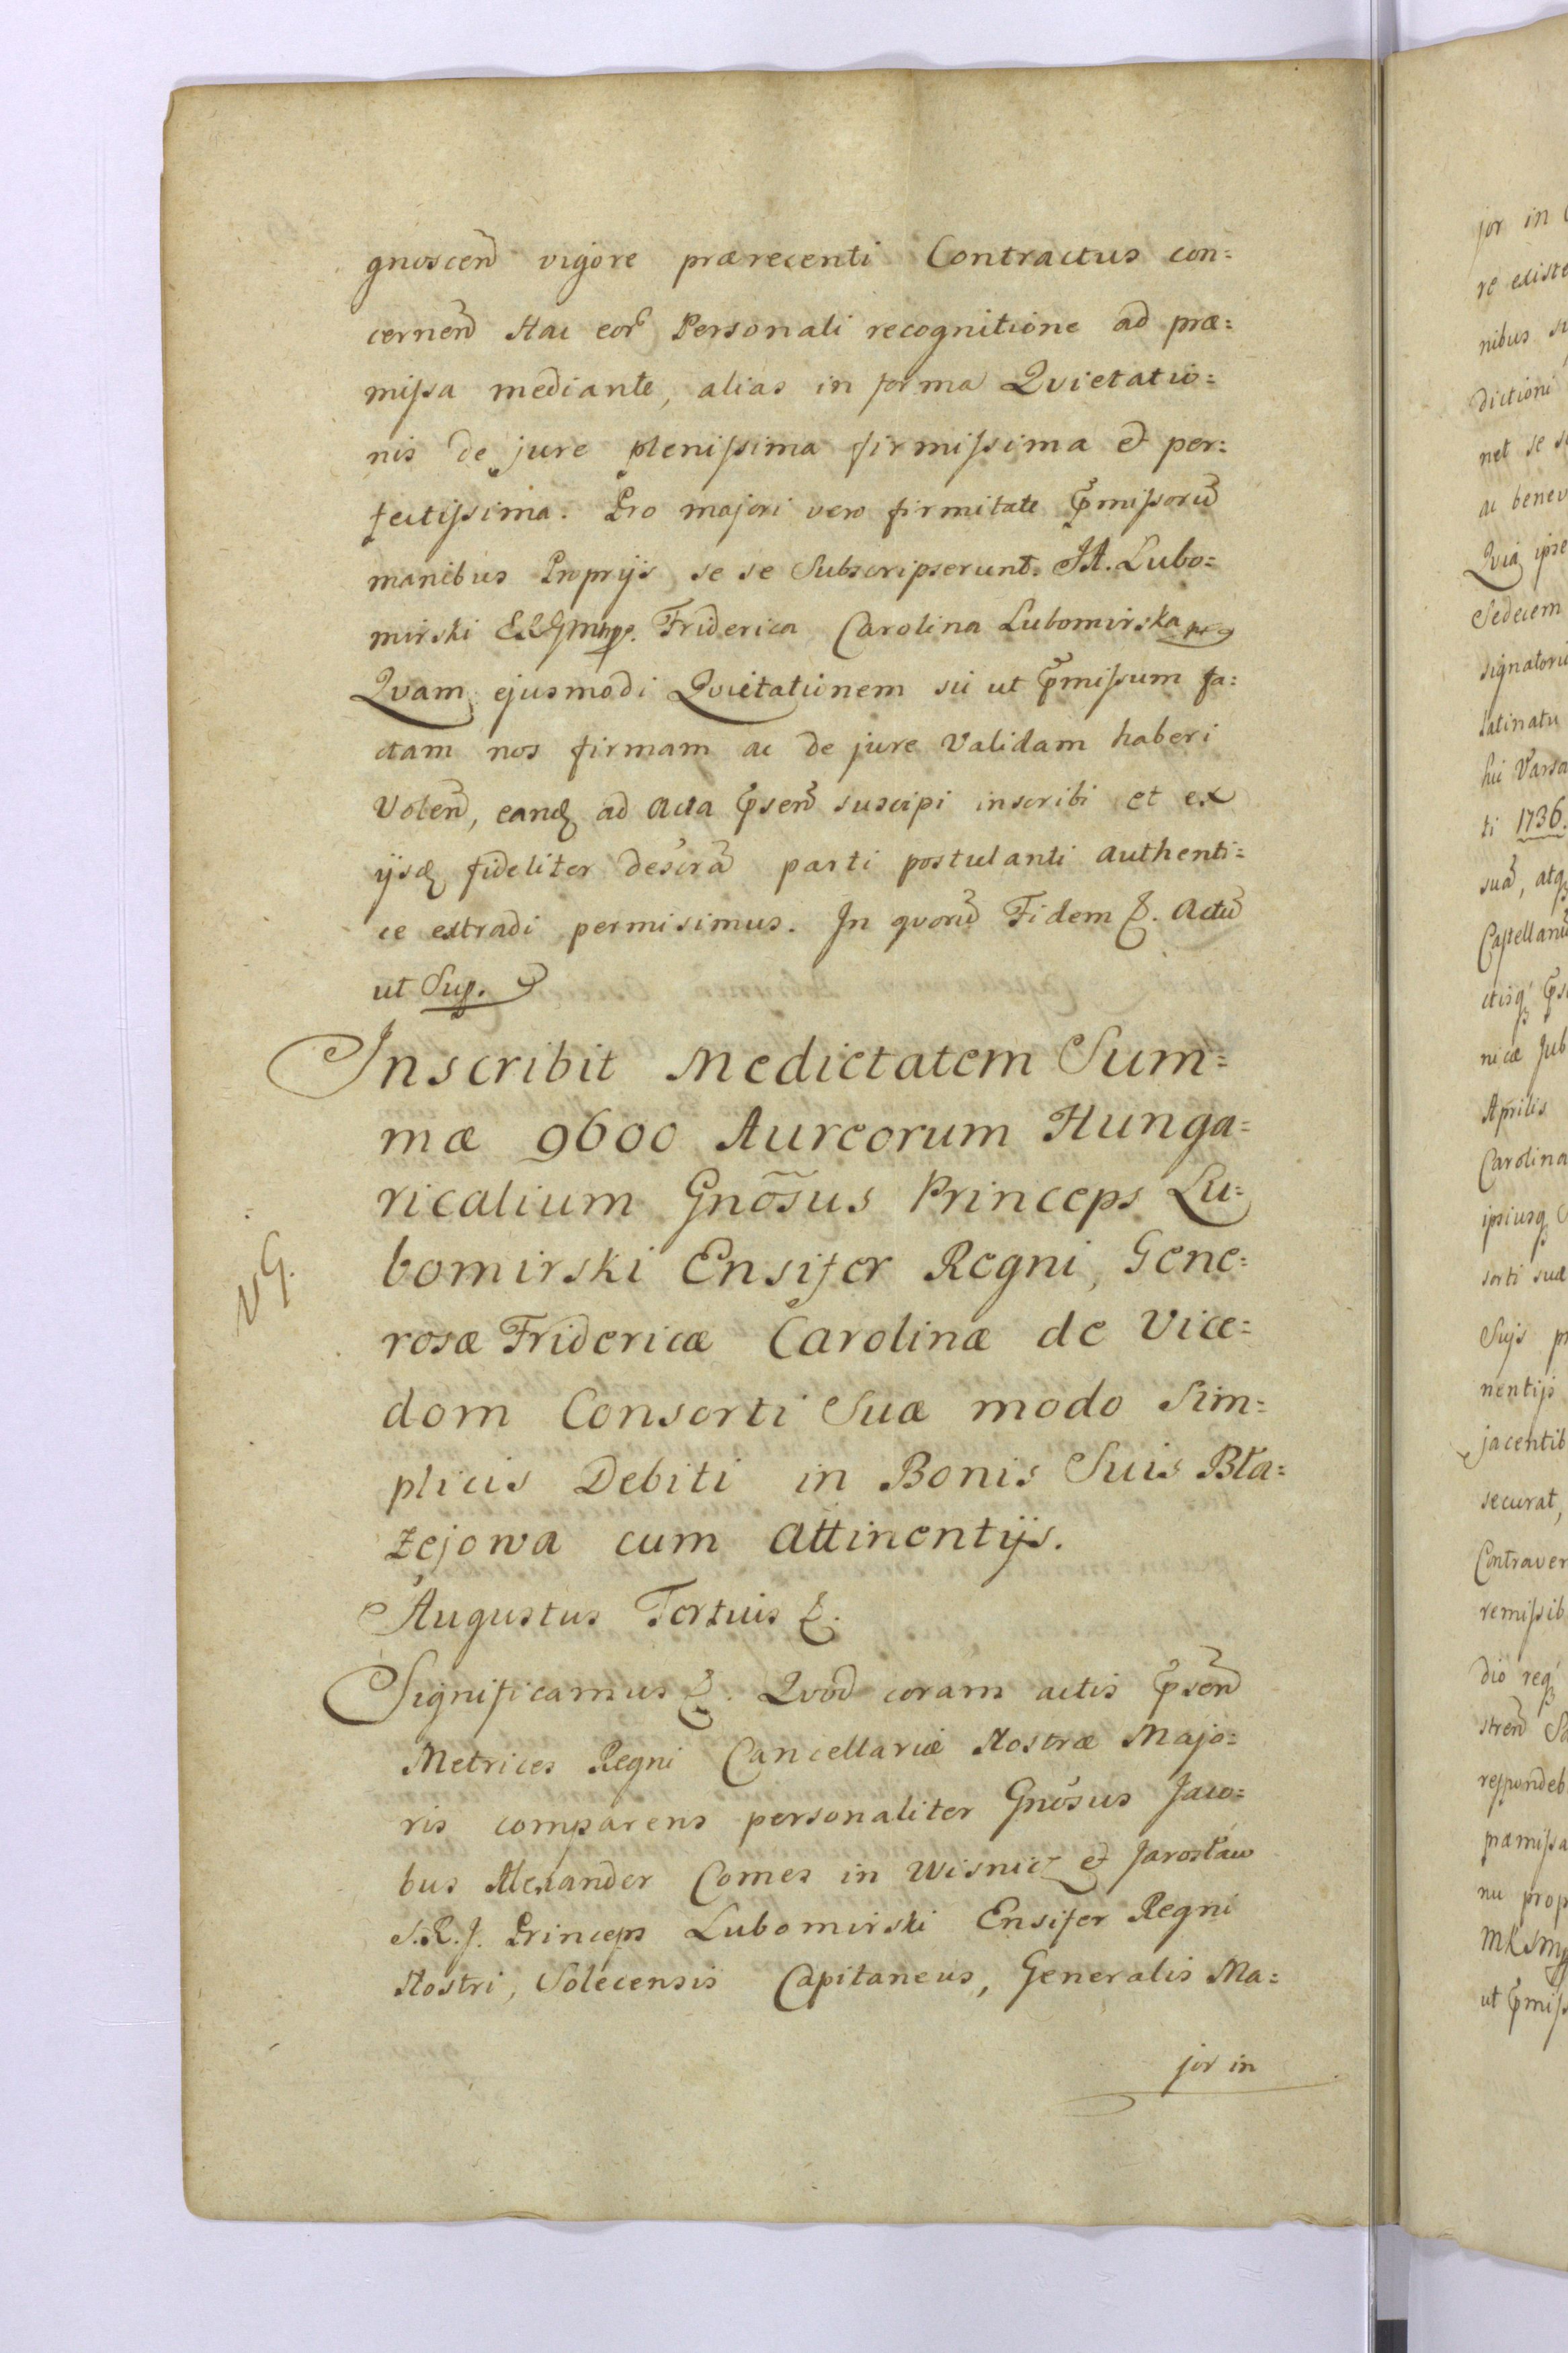 gnoscen̄ vigore prærecenti Contractus con=
cernen̄ Hac eor̄ Personali recognitione ad præ=
miſsa mediante, alias in forma Qvietatio=
nis de jure pleniſsima firmiſsima et per=
fectiſsima. Pro majori vero firmitate p̄miſsorū
manibus Proprijs se se Subscripserunt. JA. Lubo=
mirski Friderica Carolina Lubomirska
Qvam ejusmodi Qvietationem sii ut p̄miſsum fa=
ctam nos firmam ac de jure Validam haberi
Volen̄, eandq̃ ad Acta p̄sen̄ suscipi inscribi et ex
ijsdq̃ fideliter descrā parti postulanti authenti=
ce extradi permisimus. In qvorū Fidem &. Actū
ut Sup.
Inscribit Medietatem Sum=
mæ 9600 Aureorum Hunga=
ricalium Gnõsus Princeps Lu=
bomirski Ensifer Regni, Gene=
rosæ Fridericæ Carolinæ de Vice=
dom Consorti Suæ modo Sim=
plicis Debiti in Bonis Suis Bła=
żejowa cum attinentijs.
Augustus Tertius &.
Significamus &. Qvod coram actis p̄sen̄
Metrices Regni Cancellariæ Nostræ Majo=
ris comparens personaliter Gnõsus Jaco=
bus Alexander Comes in Wisnicz et Jarosław
S.R.J. Princeps Lubomirski Ensifer Regni
Nostri, Solecensis Capitaneus, Generalis Ma=
jor in
VG.
jor in
re existe
nibus su
dictioni
net se s
ac benev
Qvia ipse
Sedecem
signatoru
latinatu
hii Varsa
ti 1736.
suā, atq̃
Castellanū
nicæ Jub
Aprilis
Carolina
ipsiusq̃
sorti suæ
Suis p
nentijs
jacentib
securat,
Contraver
remiſsib
dio req̃
stren̄ Sa
respondeb
præmiſsa
nu prop
ut p̄miſs